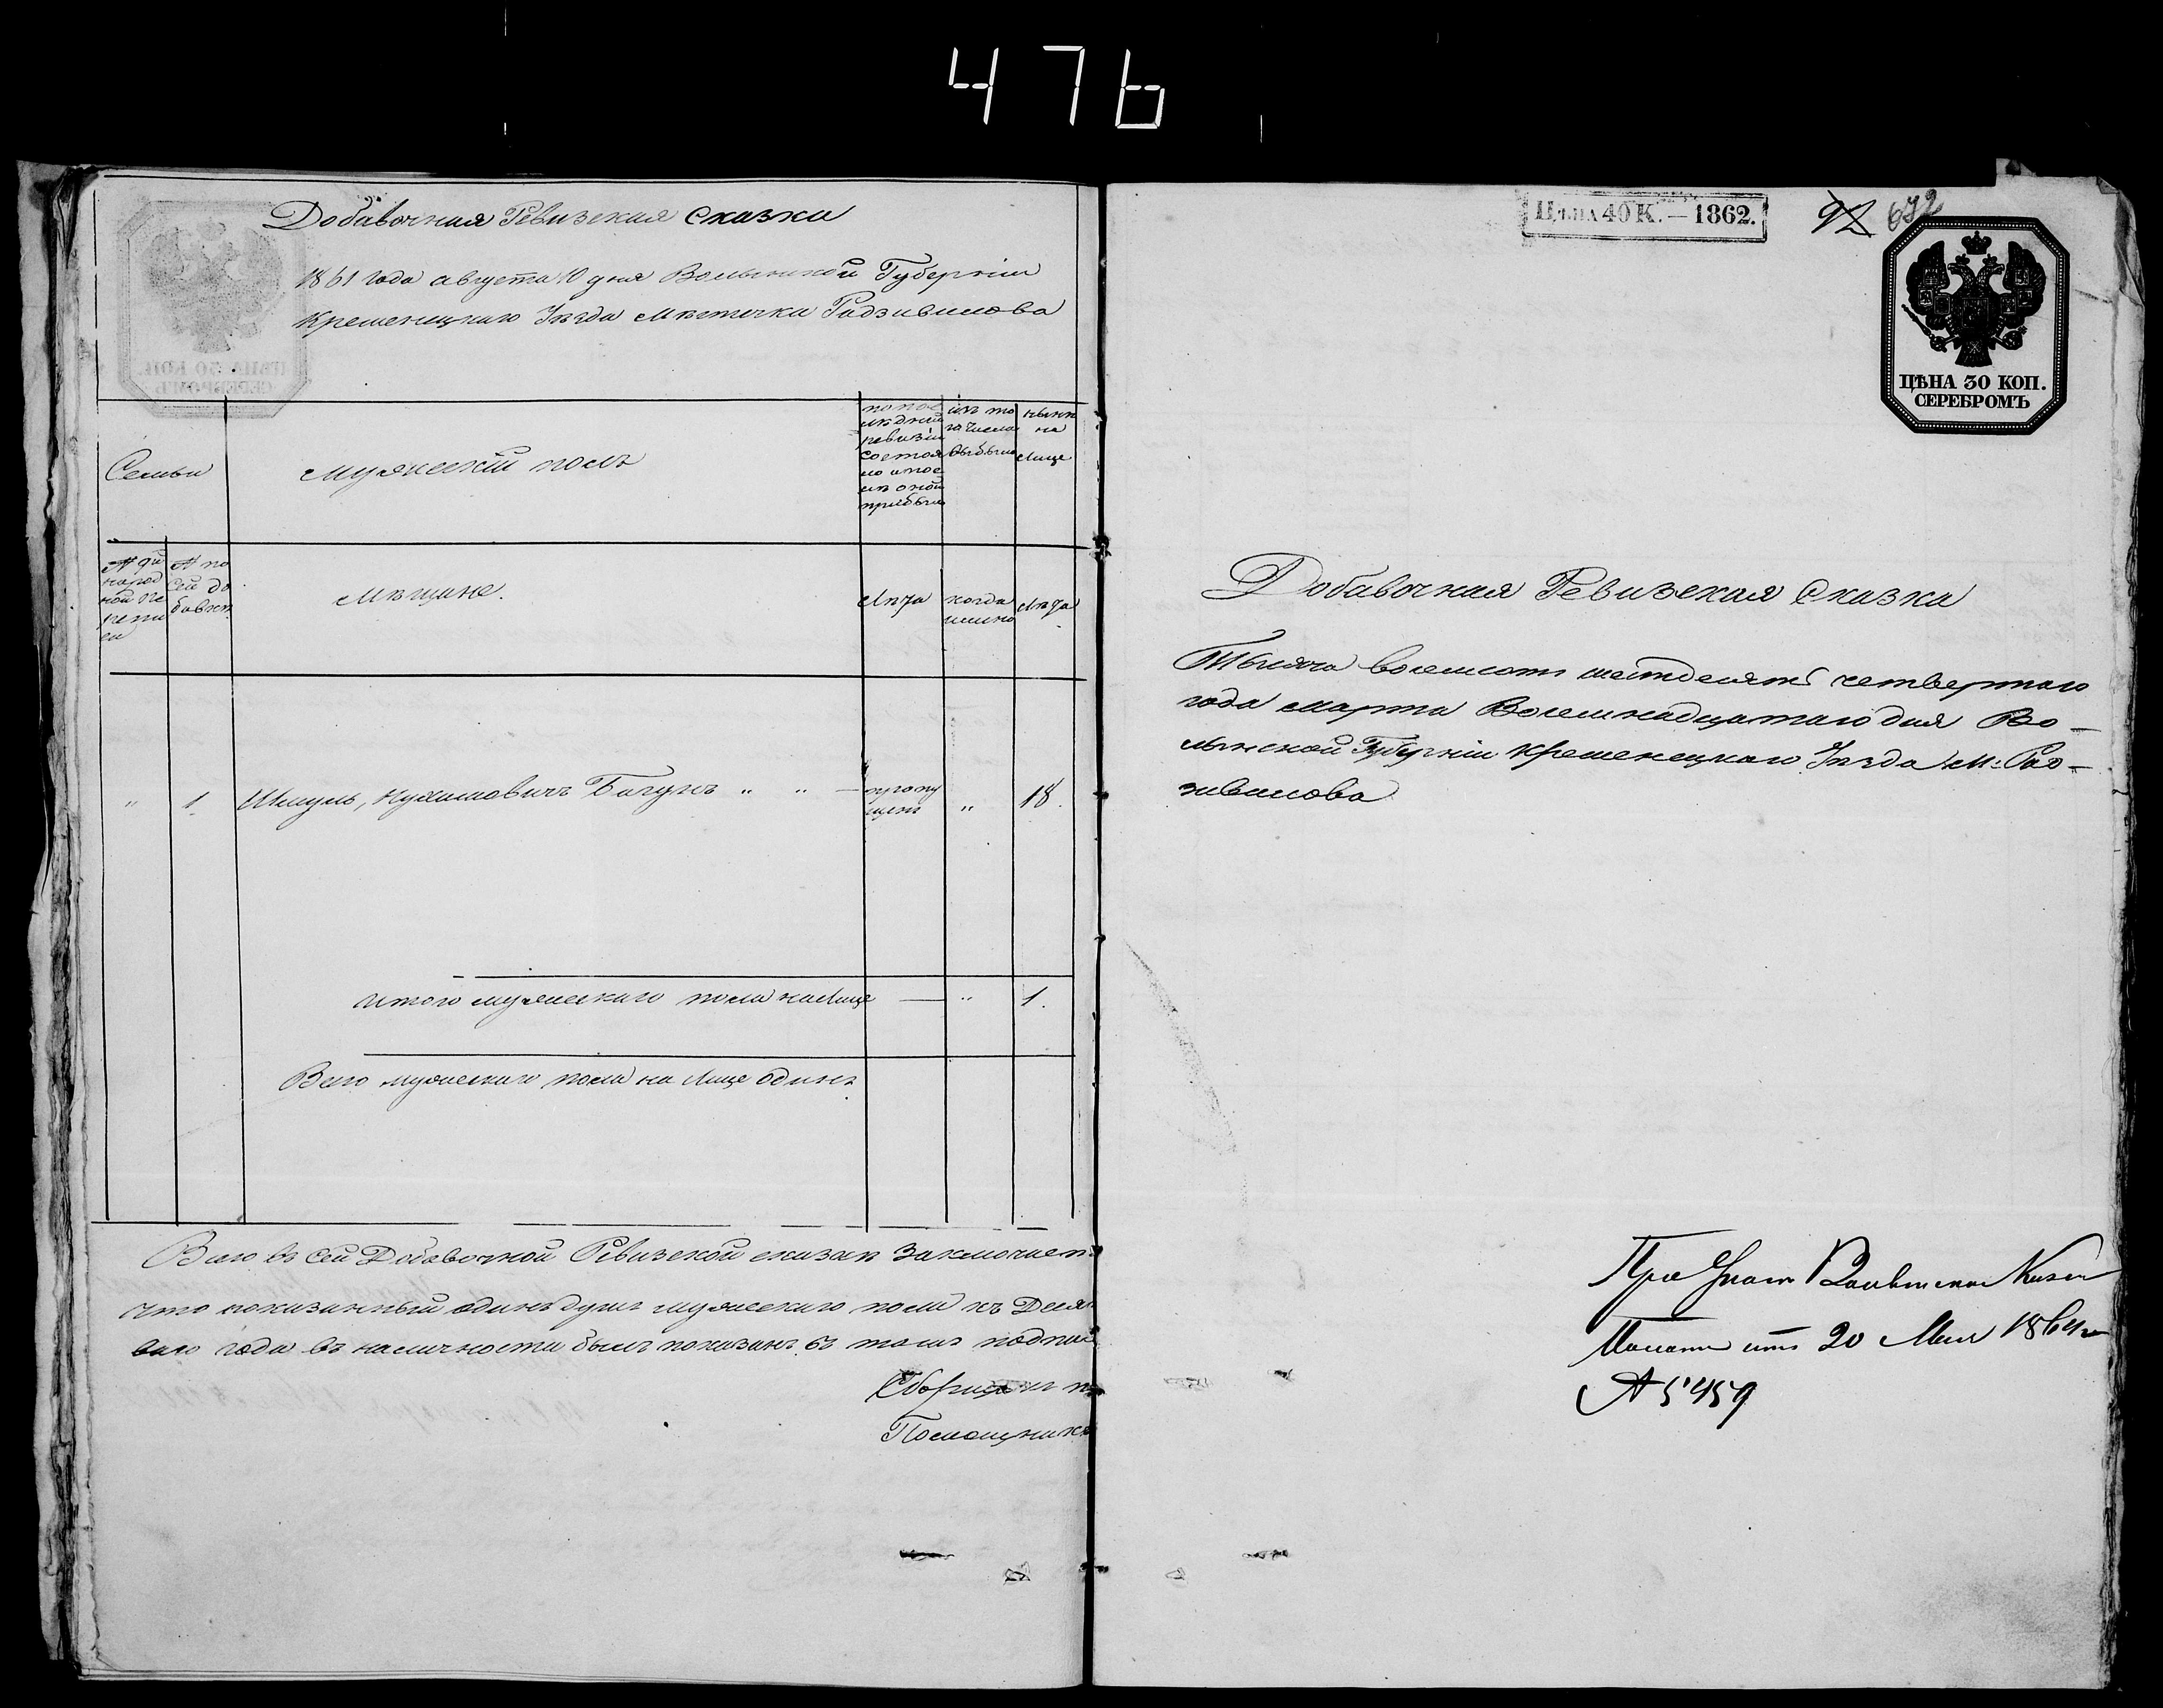 476
Добавочная Ревизская Сказка
1861 года августа 10 дня Волынской Губернии
Кременецкаго Уѣзда мѣстечка Радзивилова
Семьи
Мужескій полъ
по пос
лѣдней
ревизіи
состоя
ло и пос
лѣ оной
прибыло
изъ то
го числа
выбыло
нынѣ
на
лице
№ по
сей до
бавкѣ
Мѣщане.
Лѣта
когда
имѣнно
Лѣта
" 1 Шмуль, Нухимовичъ Багунъ " " — пропу
щенъ " 18.
Итого мужескаго пола на лице — " 1.
Всего мужескаго пола на лице одинъ
Всего въ сей Добавочной Ревизской сказкѣ Заключает
что показанный одинъ душъ мужескаго пола къ Деся
года въ наличности былъ показанъ въ томъ подпи
Сборщикъ
Помощникъ
Цѣна 40 К. — 1862.
92 672
ЦѢНА 30 КОП.
СЕРЕБРОМЪ
Добавочная Ревизская Сказка
Тысяча восемсотъ шестдесятъ четвертаго
года марта Восемнадцатаго дня Во–
лынской Губерніи Кременецкаго Уѣзда М: Рад–
зивилова
При Указѣ Волынской Казен
Палаты отъ 20 Мая 1864 г
№ 5459